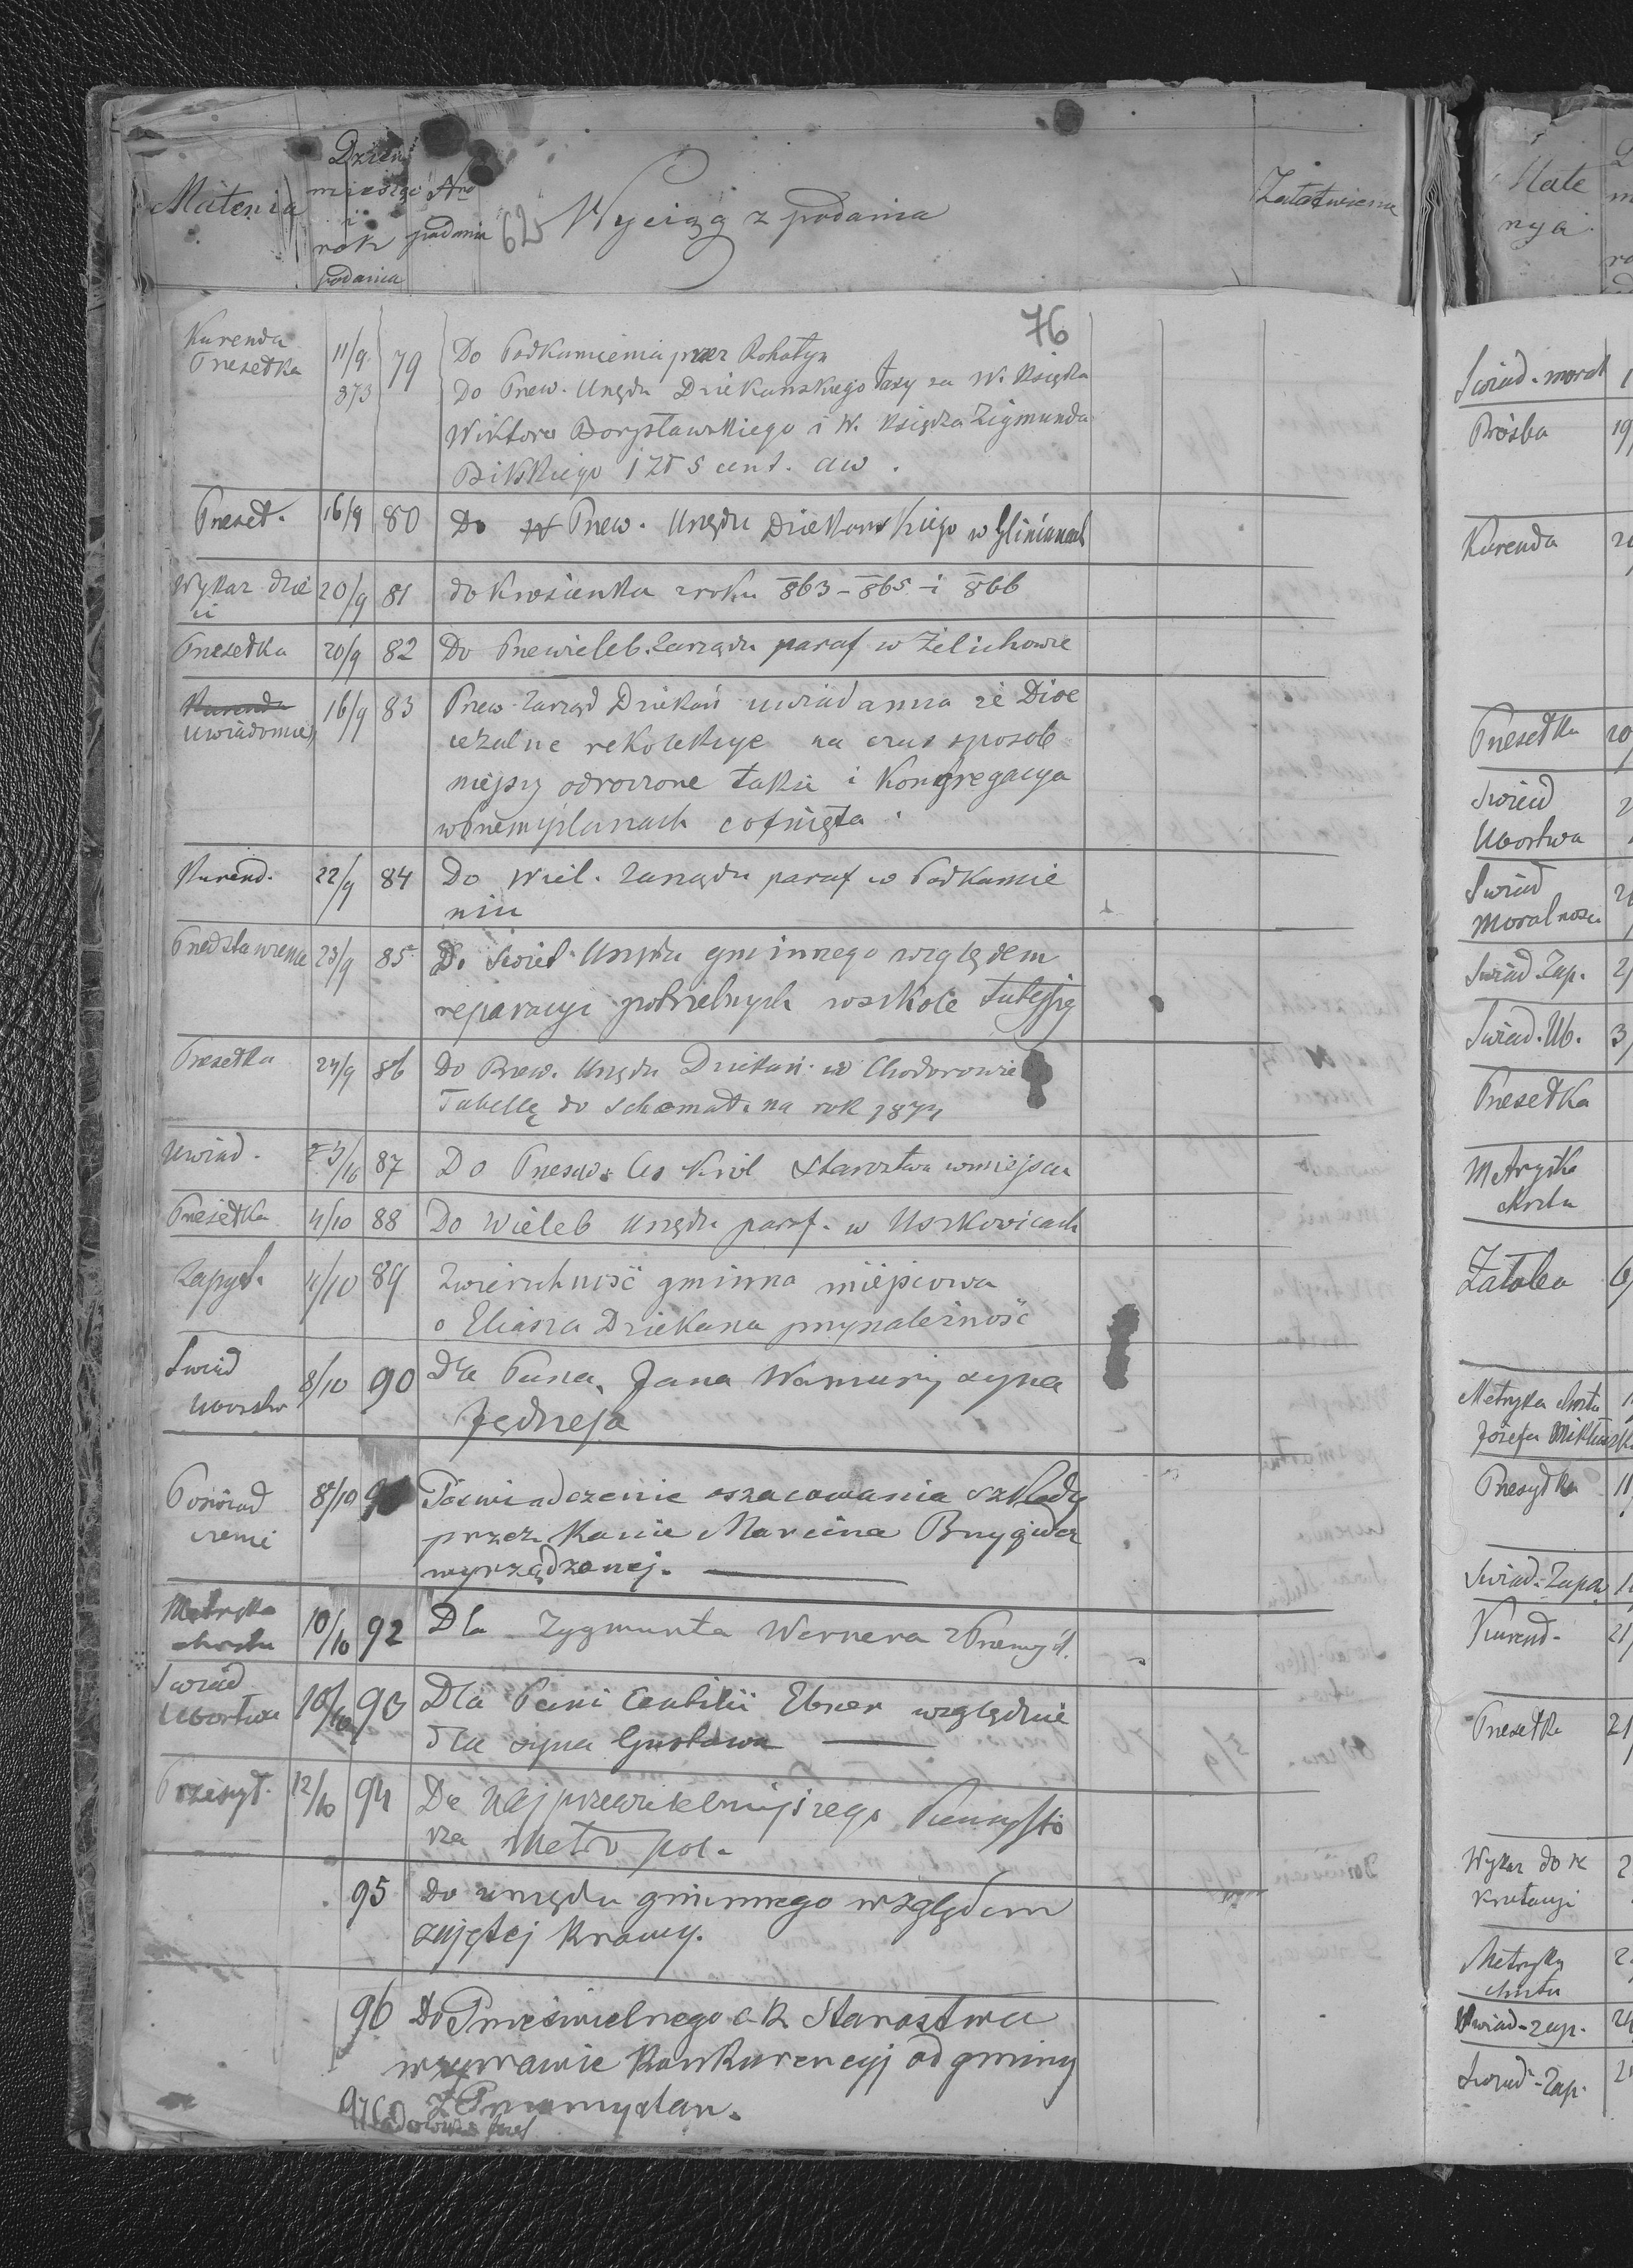 Materia
Dzień
miesiąc
i
rok
podania
Nro
podania
62
Wyciąg z podania
Załatwienie
76
Kurenda
Przesełka 11/9 873 79 Do Podkamienia przez Rohatyn
Do Przew. Urzędu Dziekanskiego taxy za W. Księdza
Wiktora Borysławskiego i W. Księdza Zigmunda
Bilskiego 1 zł 5 cent. aw.
Przeseł. 16/9 80 Do Przew. Urzędu Dziekanskiego w Glinianach
Wykaz dzie
ci 20/9 81 do Krosienka z roku 863 - 865 - i 866
Przesełka 20/9 82 Do Przewieleb. Zarządu paraf w Żelichowie
Kurenda
Uwiadomien 16/9 83 Przew. Zarząd Dziekań uwiadamia że Dioe
cezalne rekolekcye na czas sposob
niejszy odroczone także i Kongregacya
w Przemyślanach cofnięta.
Kurend. 22/9 84 Do Wiel. Zarządu paraf w Podkamie
niu
Przedstawienie 23/9 85 Do Świet. Urzędu gminnego względem
reparacyi potrzebnych w szkole tutejszej
Przesełka 24/9 86 Do Przew. Urzędu Dziekań. w Chodorowie
Tabellę do Schemat. na rok 1874
Uwiad. 23/10 87 Do Przesw. Ces Król Starostwa w miejscu
Przesełka 4/10 88 Do Wieleb Urzędu paraf. w Uszkovicach
Zapyt. 4/10 89 Zwierzchność gminna miejscowa
o Eliasza Dziekana przynależność
Swiad
Ubostw 8/10 90 Dla Pana Jana syna
Jędrzeja
Poswiad
czenie 8/10 91 Poswiadczenie oszacowania szkody
przez Konie Marcina
wyrządzonej.
Metryka
chrztu 10/10 92 Dla Zygmunta Wernera z Przemyśl.
Swiad
Ubostwa 10/10 93 Dla Pani Ebner względnie
dla syna Gustawa
Przesył. 12/10 94 Do Najprzewielebniejszego
rza Metropol.
95 Do urzędu gminnego względem
zajętej Krowy.
96 Do Prześwietnego c. k. Starostwa
w sprawie Konkurencyj od gminy
z Przemyślan.
97
Mate
rya
Swiad. moral
Prósba 19/
Kurenda
Przesełka 20/
Swiad
Ubostwa
Swiad
Moralnosci
Swiad. Zap. 2/
Swiad. Ub. 3/
Przesełka
Metryka
chrztu
Żałoba 6/
Metryka chrztu
Józefa
Przesyłka 11/
Swiad. Zapow
Kurend. 21/
Przesełka 21/
Wykaz do re
krutacyi
Metryka
chrztu
Swiad-zap.
Swiad-Zap.